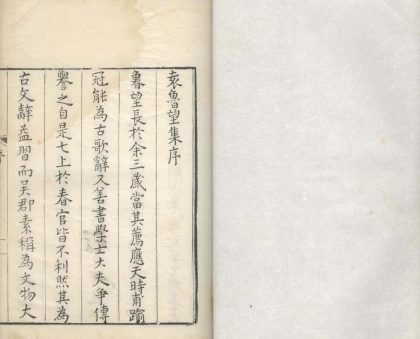 袁魯望集序
魯望長於余三歲當其薦應天時甫踰
冠能為古歌辭又善書學士大夫爭傳
譽之自是七上於春官皆不利然其為
古文辭益習而吴郡素稱為文物大